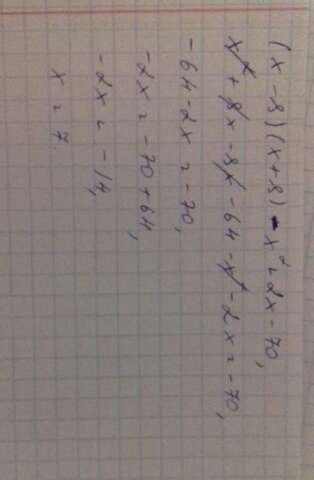 (x - 8)(x + 8) - x² = 2x - 70,
x² + 8x - 8x - 64 - x² - 2x = -70,
-64 - 2x = -70,
-2x = -70 + 64,
-2x = -14,
x = 7.